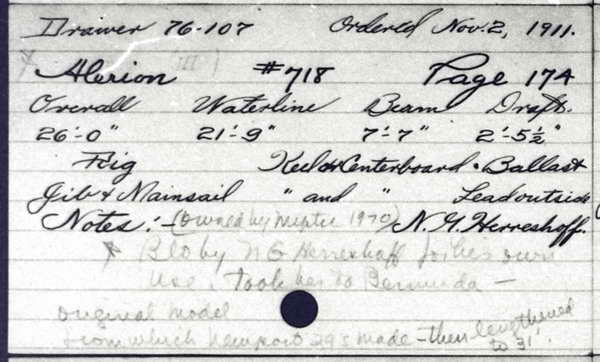 Drawer 76-107 Ordered Nov. 2, 1911.
Alerion III #718 Page 174
Overall Waterline Beam Draft.
26'-0" 21'-9" 7'-7" 2'-5½"
Rig Keel or Centerboard. Ballast
Jib & Mainsail " and " Lead outside
Notes:- (Owned by 1970) N. G. Herreshoff.
x Blt by N G Herreshoff for his own
use. Took her to Bermuda -
original model
from which Newport 29s made - then lengthened
to 31'